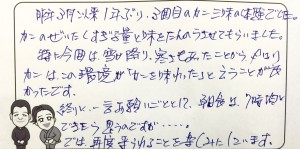 昨年3月以来1年ぶり、3回目のカニ三昧の体験でした。
カニのぜいたくしすぎる量と味をたんのうさせてもらいました。
特に今回は雪が降り、寒さもあったことから、やはり
カニは、この環境が「カニを味わった」ということが良
かったです。
終りに一言お願いごととして、朝食は、7時頃と
できたらと思うのですが・・・・。
では、再度来られることを楽しみにしています。